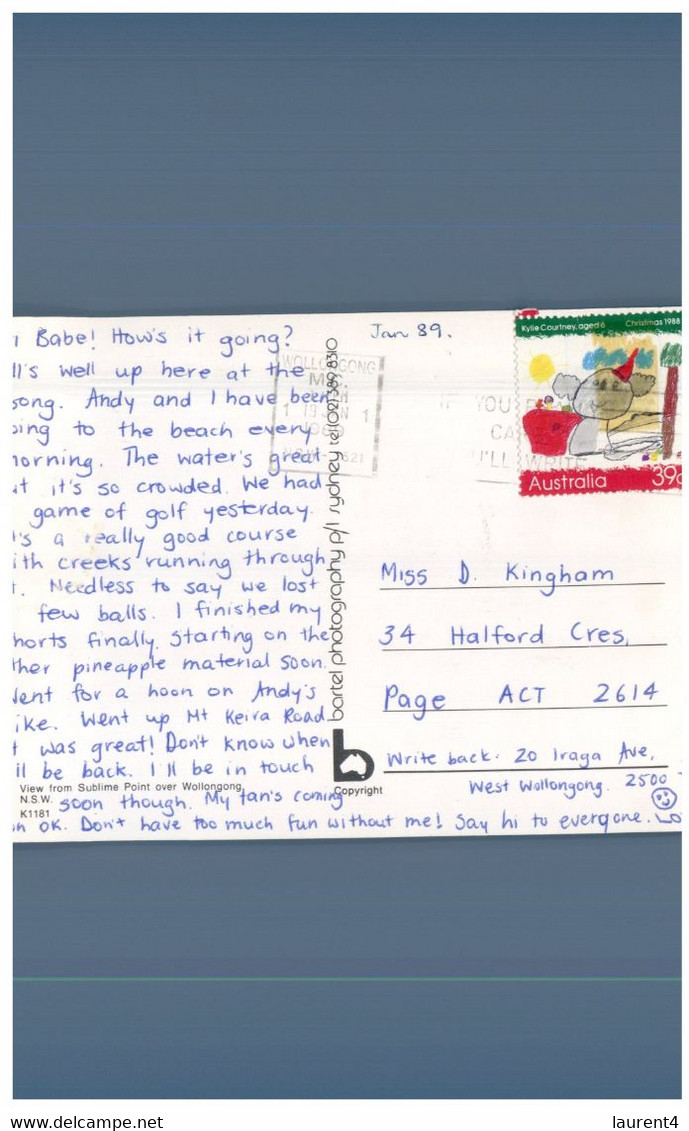 Babe! How's it going?
ll's well up here at the
song. Andy and I have been
oing to the beach every
orning. The water's great
ut it's so crowded. We had
game of golf yesterday.
t's a really good course
ith creeks running through
t. Needless to say we lost
few balls. I finished my
horts finally. Starting on the
ther pineapple material soon.
Went for a hoon on Andy's
ike. Went up Mt Keira Road
t was great! Don't know when
i'll be back. I'll be in touch
soon though. My tan's coming
on OK. Don't have too much fun without me! Say hi to everyone.
View from Sublime Point over Wollongong,
N.S.W.
K1181
bartel photography p/l sydney tel (02) 389 8310
Copyright
Jan 89.
WOLLONGONG
1989
IF YOU
CA
I'LL WRITE
Kylie Courtney, aged 6 Christmas 1988
Australia 39c
Miss D. Kingham
34 Halford Cres,
Page ACT 2614
Write back. 20 Iraga Ave,
West Wollongong. 2500
laurent4